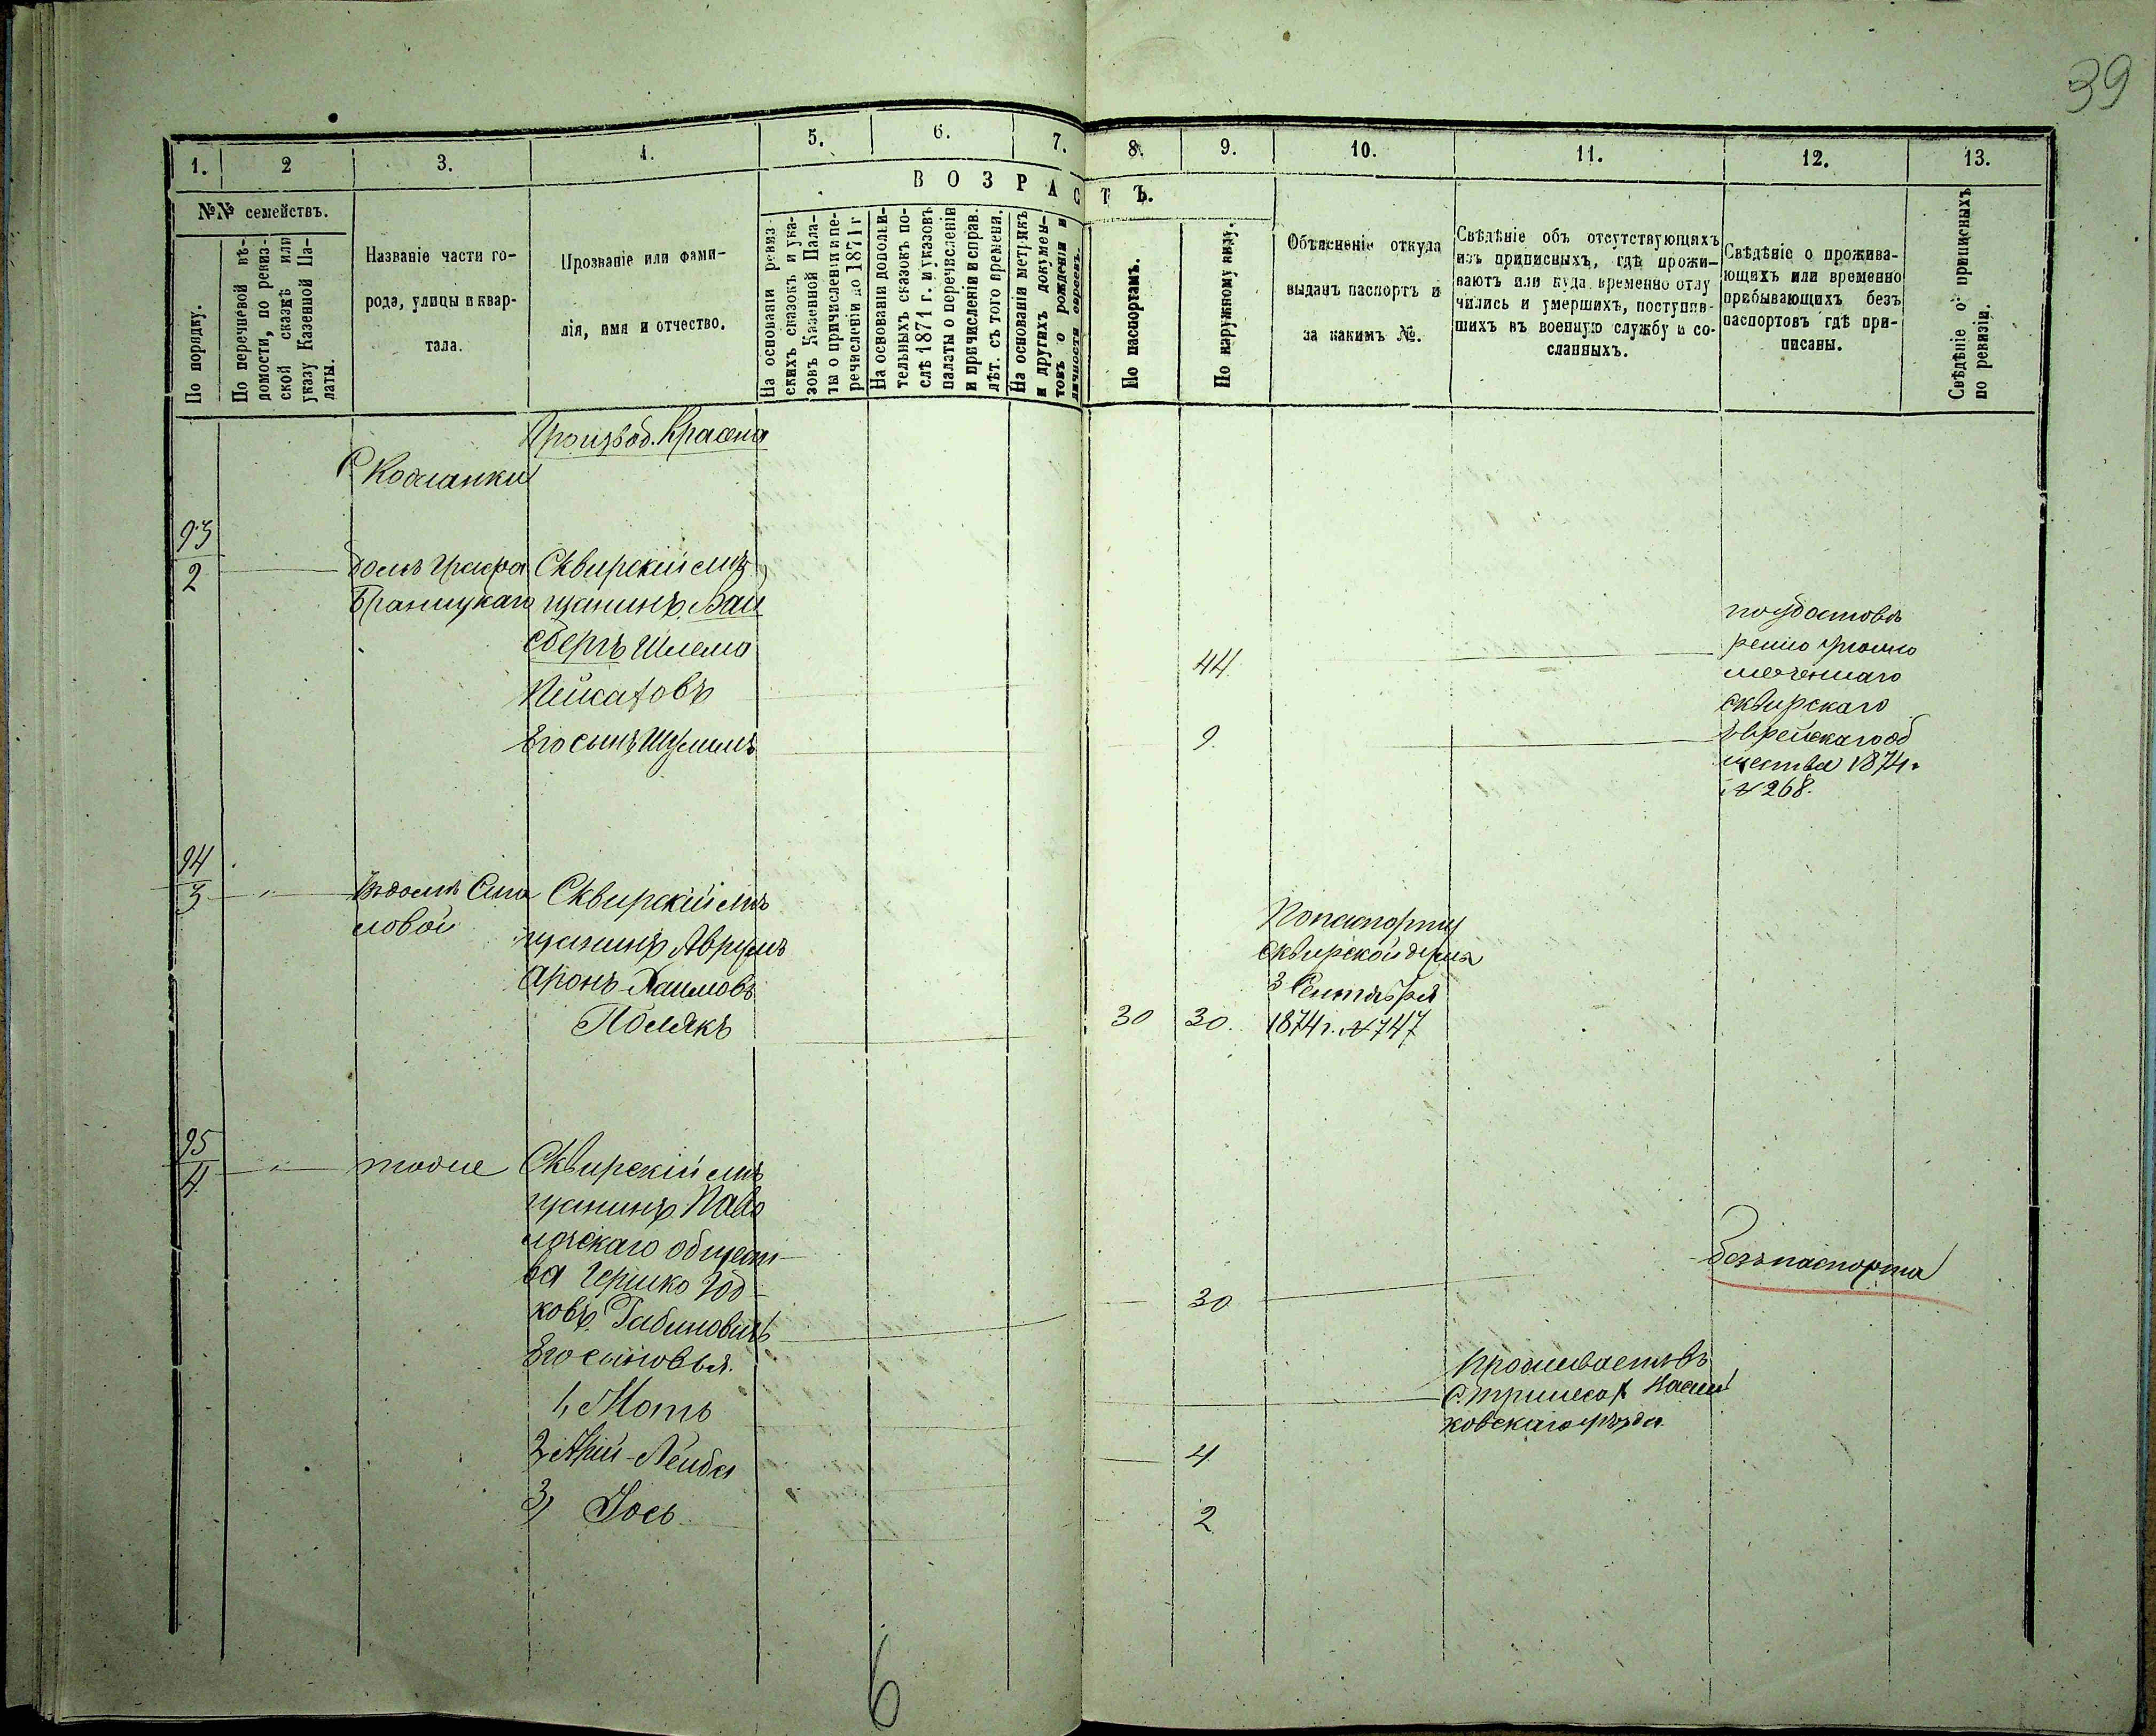 39
1. 2 3. 4. 5. 6. 7. 8. 9. 10. 11. 12. 13.
ВОЗРАСТЪ.
№№ семействъ.
По порядку.
По перечневой вѣ-
домости, по ревиз-
ской сказкѣ или
указу Казенной Па-
латы.
Названіе части го-
рода, улицы и квар-
тала.
Прозваніе или фами-
лія, имя и отчество.
На основаніи ревиз
скихъ сказокъ и ука-
зовъ Казенной Пала-
ты о причисленіи и пе-
речисленіи до 1871 г
На основаніи дополни-
тельныхъ сказокъ по-
слѣ 1871 г. и указовъ
палаты о перечисленіи
и причисленіи и справ.
лѣт. съ того времени.
На основаніи метрикъ
и другихъ докумен-
товъ о рожденіи и
личности евреевъ.
По паспортамъ.
По наружному виду.
Объясненіе откуда
выданъ паспортъ и
за какимъ №.
Свѣдѣніе объ отсутствующихъ
изъ приписныхъ, гдѣ прожи-
ваютъ или куда временно отлу
чились и умершихъ, поступив-
шихъ въ военную службу и со-
сланныхъ.
Свѣдѣніе о прожива-
ющихъ или временно
пребывающихъ безъ
паспортовъ гдѣ при-
писаны.
Свѣдѣніе о приписныхъ
по ревизіи.
Производ.
С
93
2
Домъ Графа
Браницкаго
Сквирскій мѣ
щанинъ Вай
сбергъ Шлема
44
Его сынъ Шулимъ
9.
по удостовѣ
ренію уполно
моченнаго
сквирскаго
Еврейскаго об
щества 1874.
№ 268.
94
3
Въ домѣ
Сквирскій мѣ
щанинъ Аврумъ
Аронъ Хаимовъ
Полякъ
30 30.
По паспорту
сквирской думы
3 Сентября
1874 г. № 747
95
4
тоже
Сквирскій мѣ
щанинъ Паво
лочскаго общест-
ва Гершко
30
Его сыновья.
Безъ паспорта
1, Мотъ
Проживаетъ въ
2, Арій-Лейба
4
3, Іось
2
6